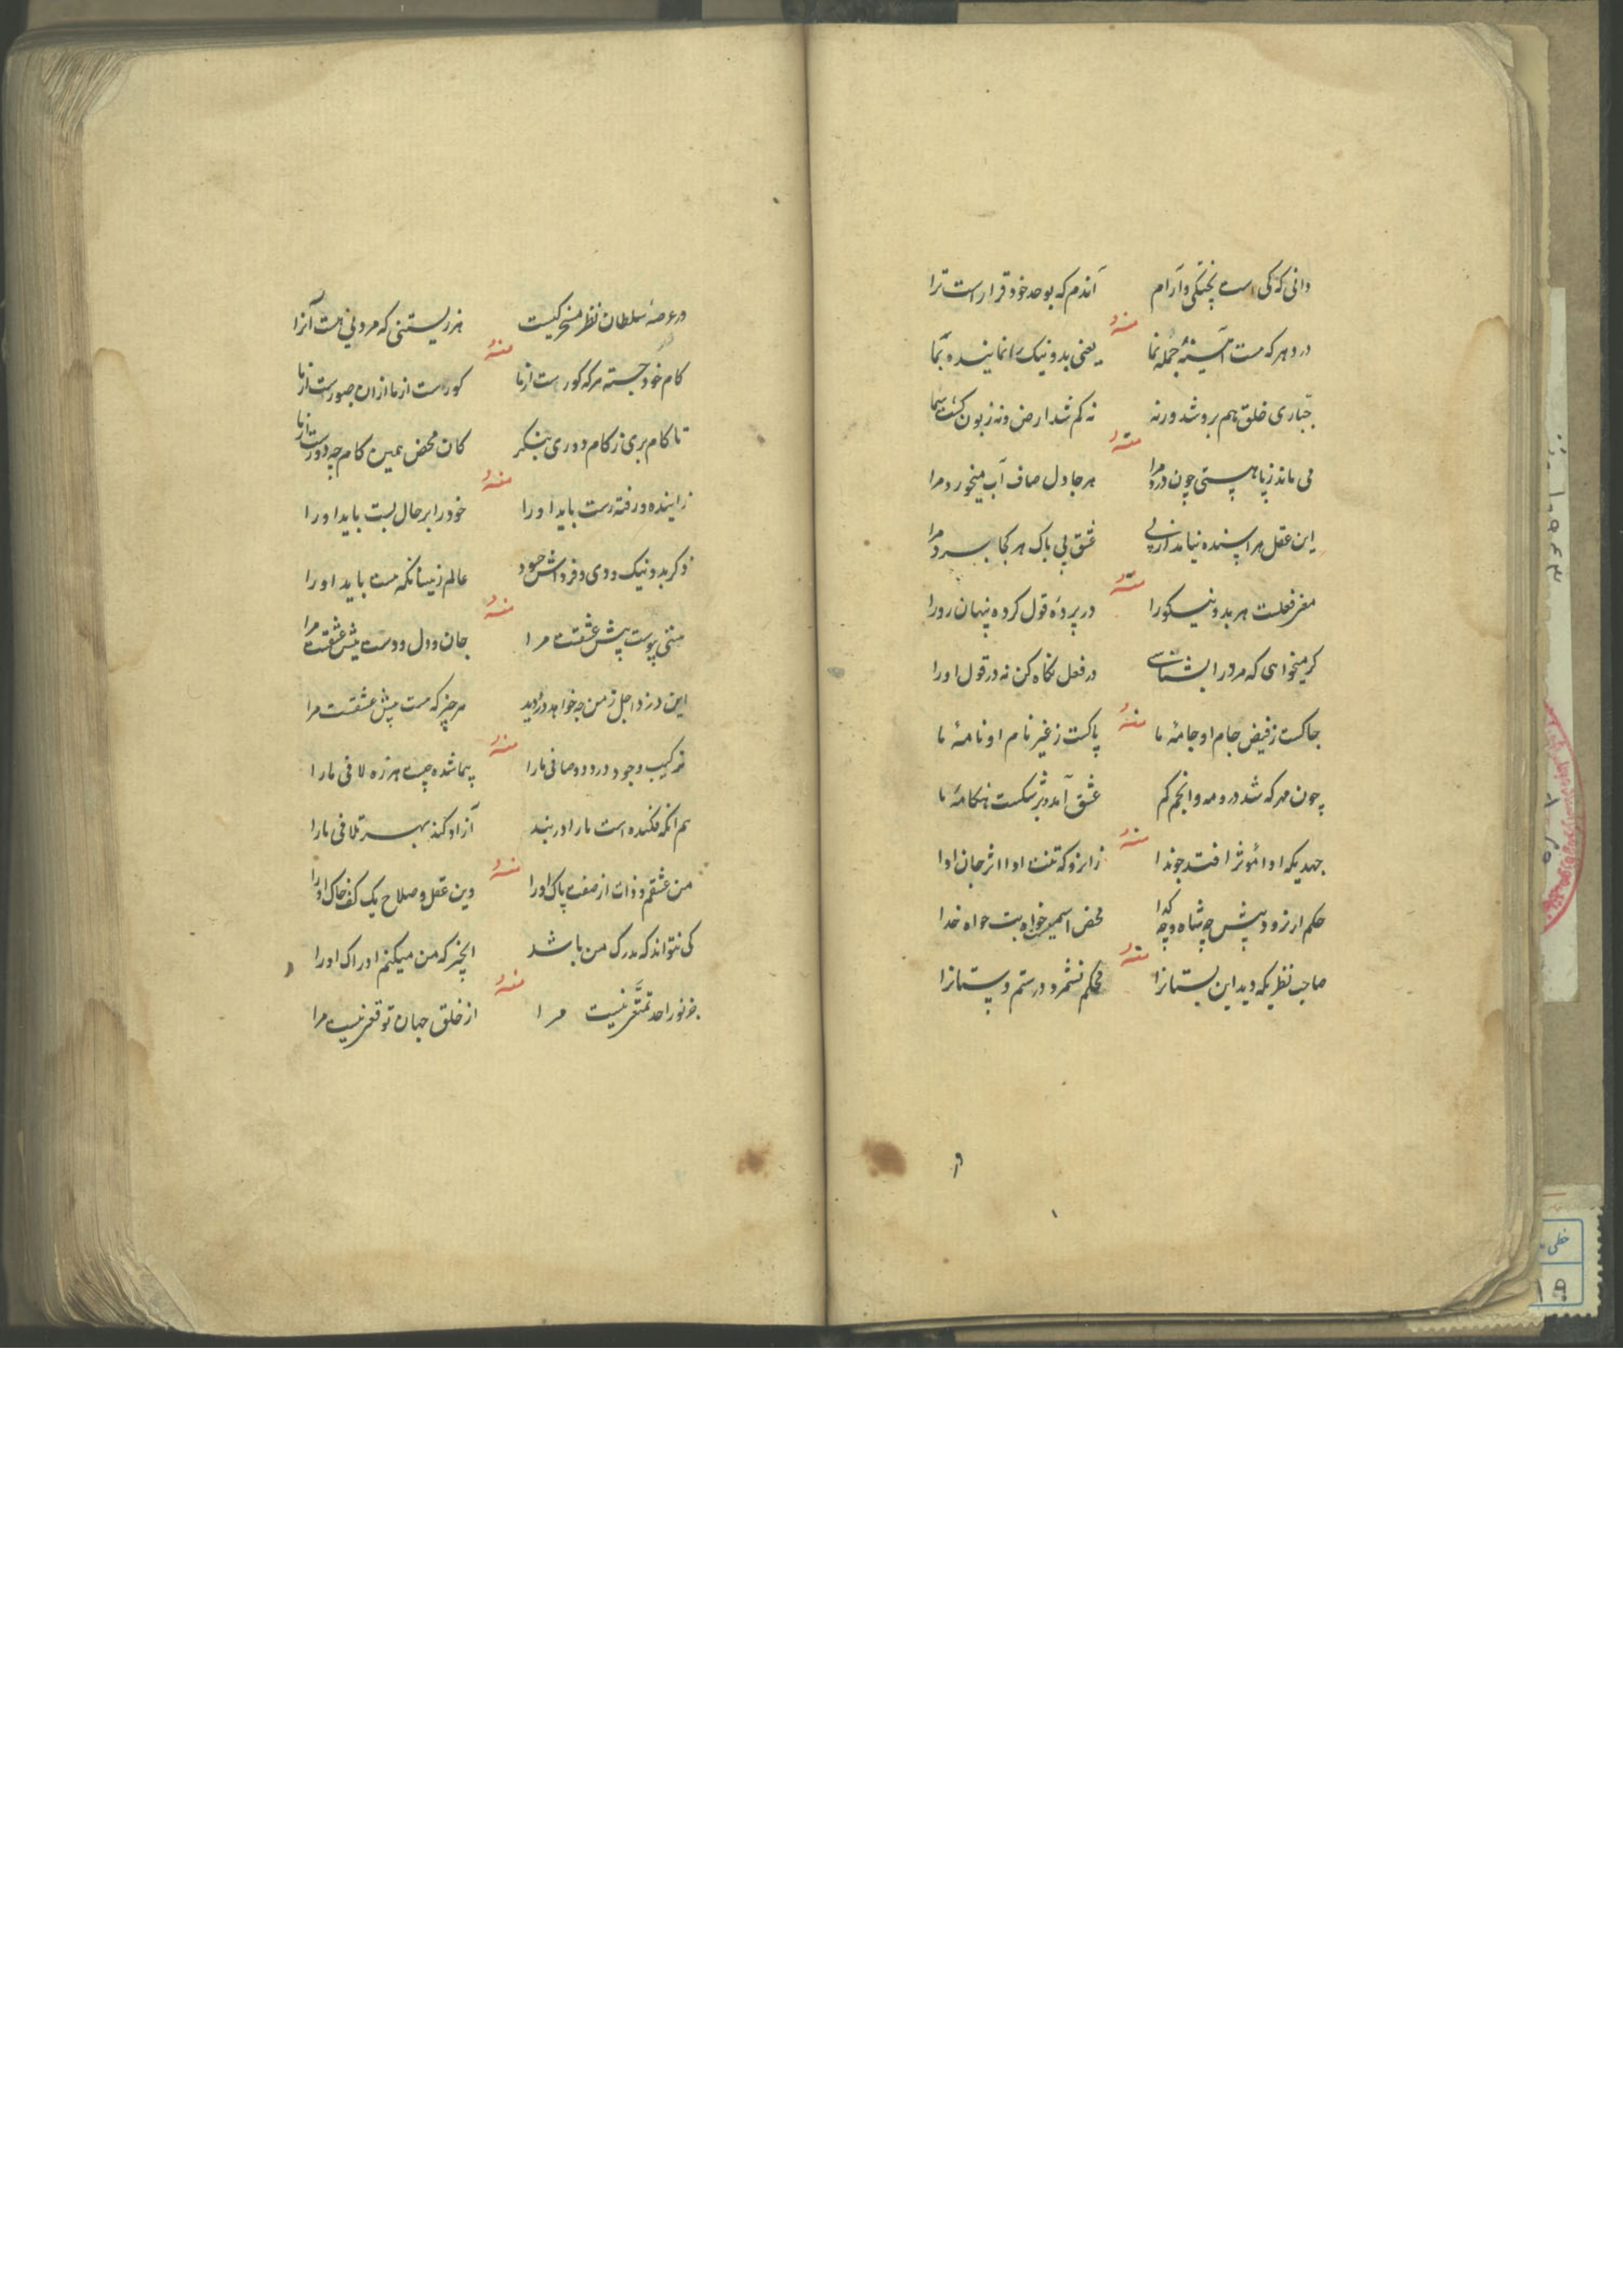 دانی که کی است پختگی و آرام آندم که بوحد خود قرارست ترا
منه
در دهر که هست آینهٔ جمله نما یعنی بد و نیک را نماینده بما
جباری خلق هم برو شد ورنه نه کم شد ارض و نه زبون گشت سما
منه
می ماند ز پا هستی چون درد مرا هر جا دل صاف آب میخورد مرا
این عقل مرا پسنده نیامد از پی عشق بی باک هر کجا برد مرا
منه
مغز فعلست هر بد و نیکو را در پرده قول کرده پنهان رو را
گر میخواهی که مرد را بشناسی در فعل نگاه کن نه در قول او را
منه
چاکست ز فیض جام او جامهٔ ما پاکست ز غیر نام او نامهٔ ما
چون مهر که شد درو مه و انجم کم عشق آمد و بشکست هنگامهٔ ما
منه
جهدیکه ادا مؤثر افتد چو ندا زانرو که تنست ادا اثر جان ادا
حکم ار نرود پیش چه شاه و چه گدا محض اسمیست خواه بت خواه خدا
منه
صاحب نظریکه دید این بستانرا محکم نشمرد و رستم دستانرا
در عرصهٔ سلطان نظر مسخرکیست هر زیستنی که مردنی هست آنرا
منه
کام خود جسته هر که کورست از ما کورست از ما ازان بصورست از ما
تا کام بری ز کام دوری بنگر کان محض همین کام چه دورست از ما
منه
زاینده و رفته رست باید او را خود را بر حال بست باید او را
ذکر بد و نیک و دی و فرداش چه سود عالم زینسانکه هست باید او را
منه
مشتی پوست پیش عشقست مرا جان و دل و دوست پیش عشقست مرا
این دزد اجل ز من چه خواهد دزدید هر چیز که هست پیش عشقست مرا
منه
ترکیب وجود درد و صافی ما را پیما شده چیست هرزه لافی ما را
هم آنکه فکنده است ما را در بند آزاد کند بهر تلافی ما را
منه
من عشقم و ذات از صفت پاک او را دین عقل و صلاح یک کف خاک او را
کی نتواند که مدرک من باشد آنچیز که من میکنم ادراک او را
منه
جز نور احد تمتع نیست مرا از خلق جهان توقع نیست مرا
خطی